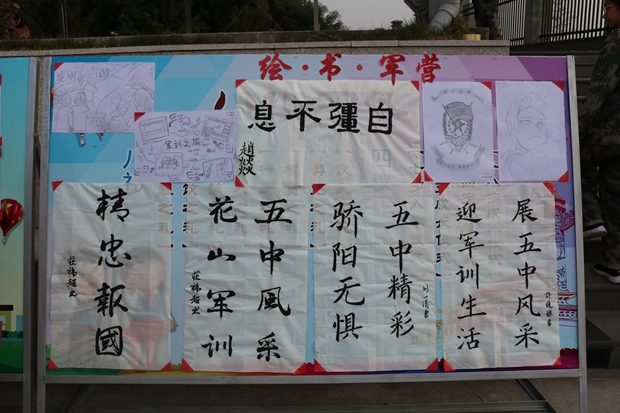 绘·书·军营
自彊不息
军训之旅
展五中风采
迎军训生活
五中精彩
骄阳无惧
五中風采
花山军训
精忠報國